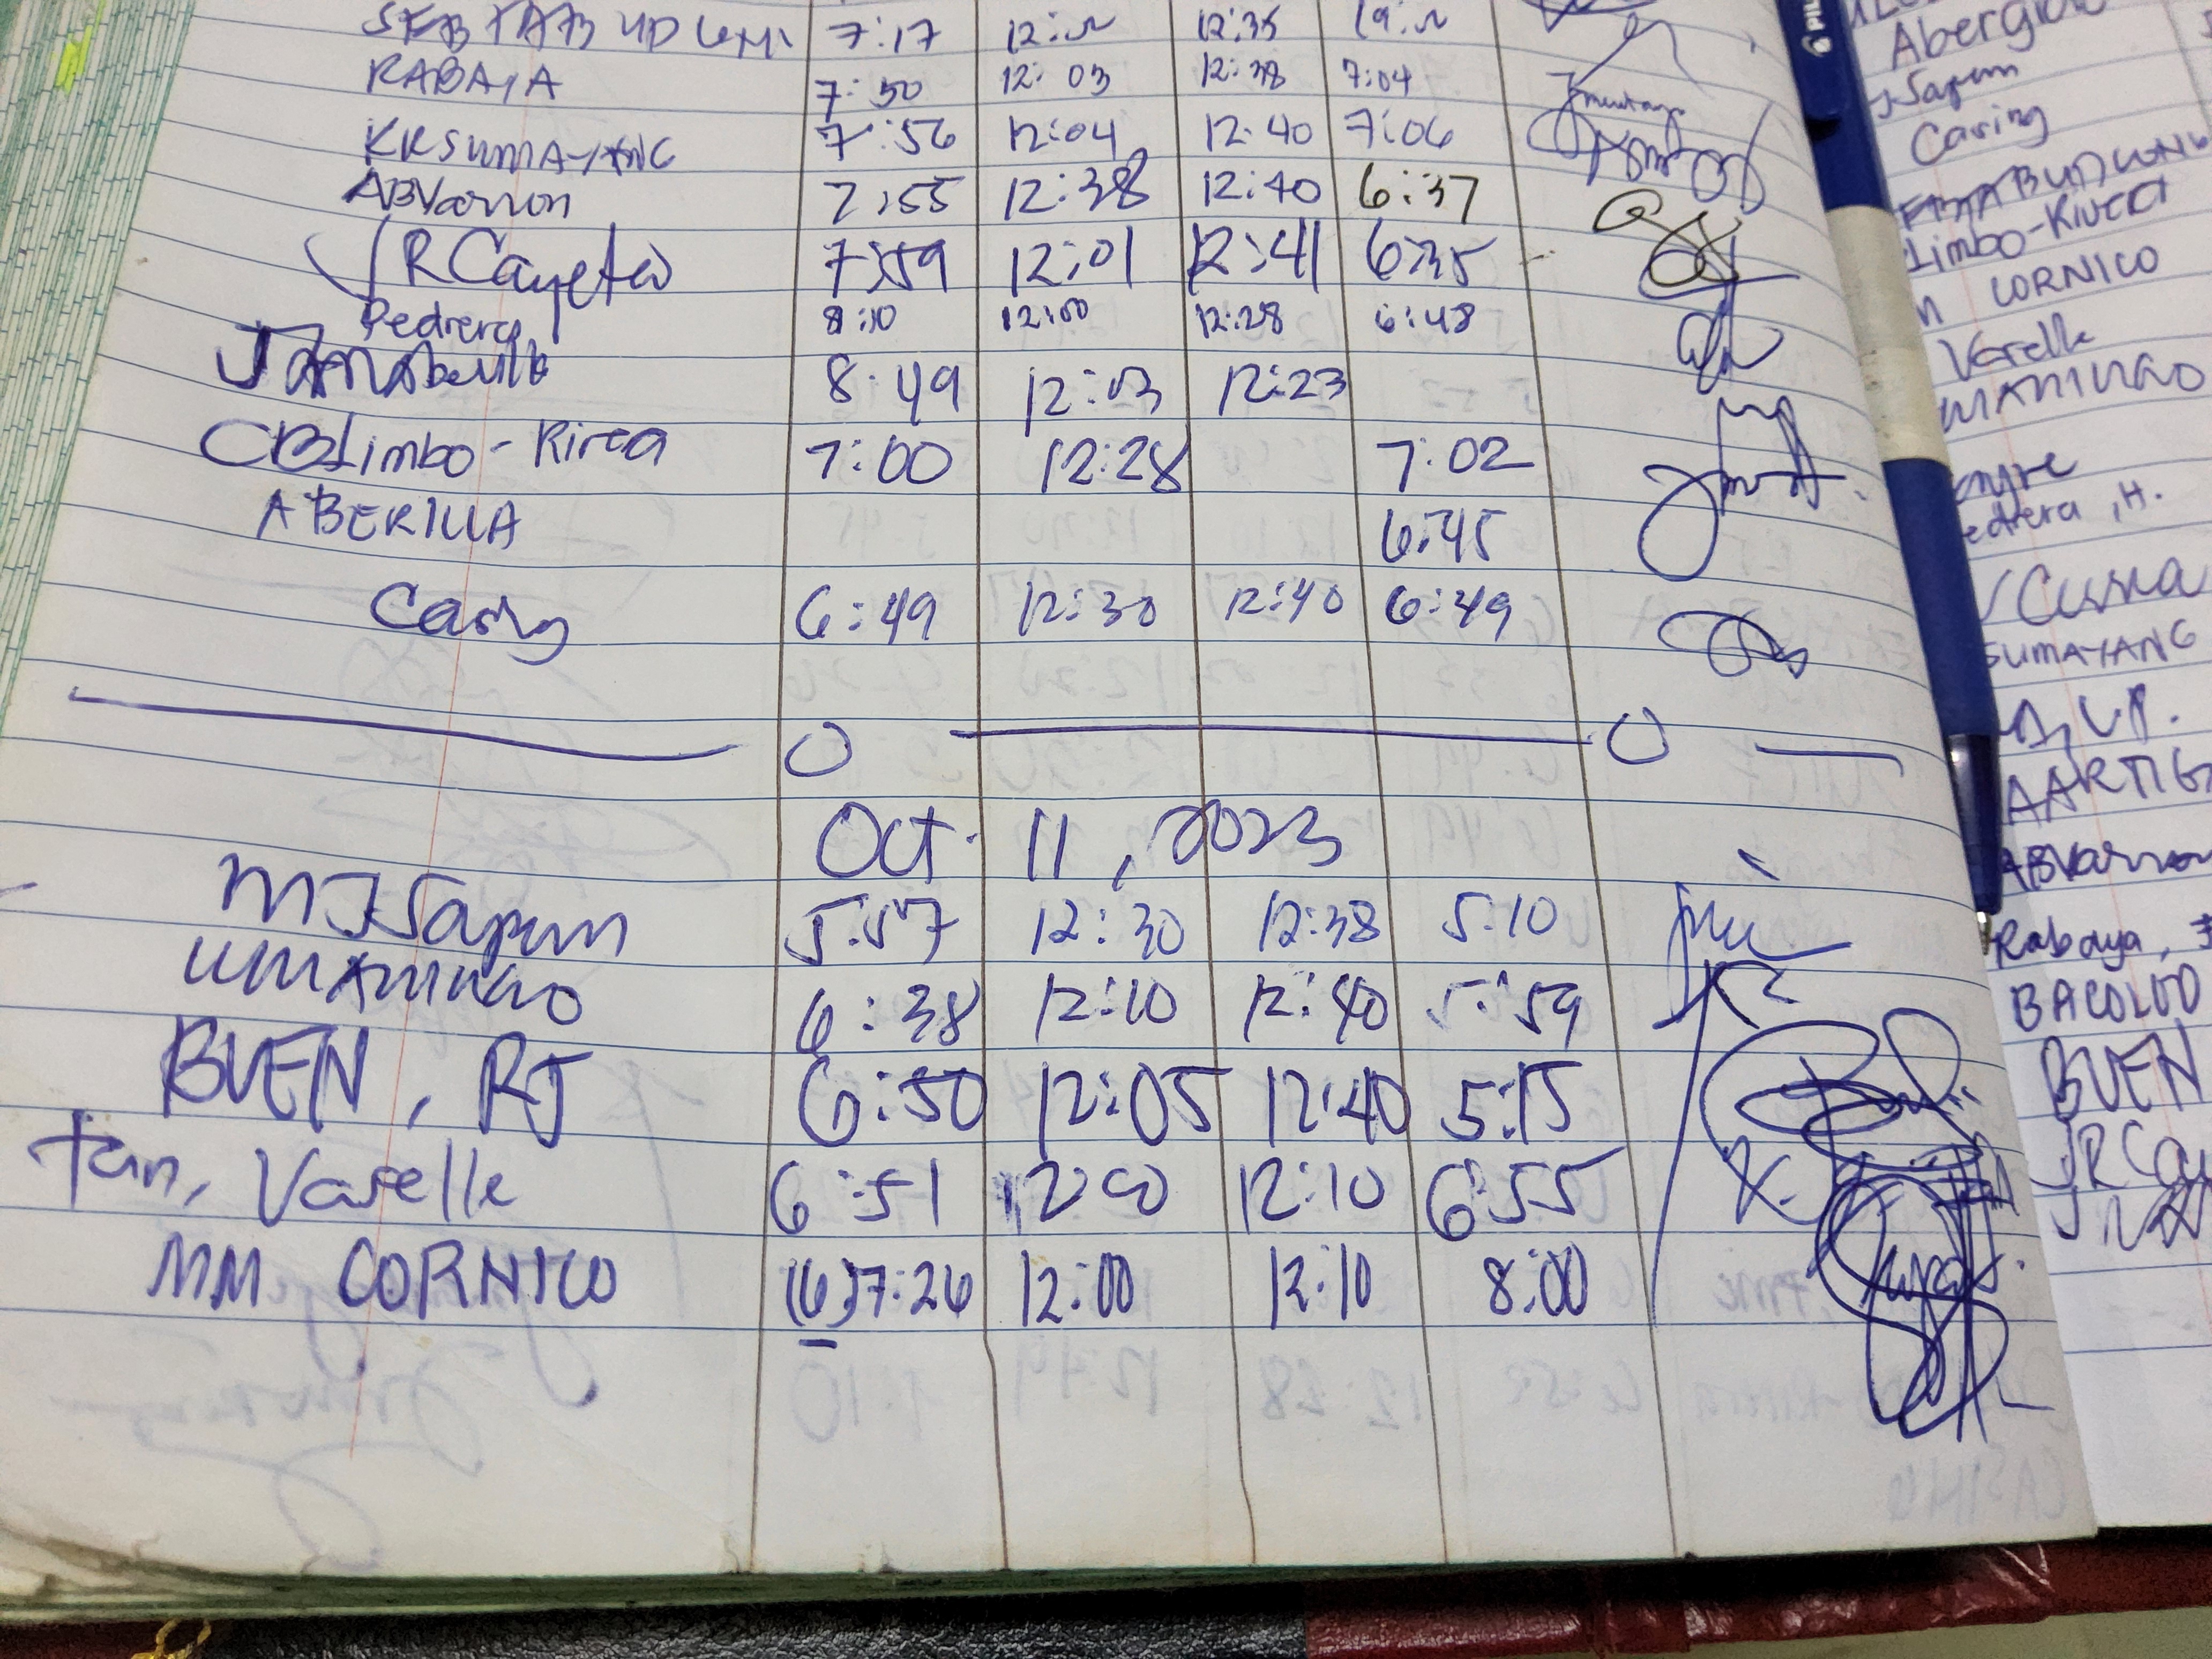 7:17 12:35
RABAYA 7:50 12:03 12:38 7:04
KRSUMAYANG 7:56 12:04 12:40 7:06
ABVarron 7:55 12:38 12:40 6:37
JRCayetano 7:59 12:01 12:41 6:35
Pedrera 8:10 12:00 12:28 6:48
8:49 12:03 12:23
CBLimbo-Rivera 7:00 12:28 7:02
ABERILLA 6:45
Casing 6:49 12:30 12:40 6:49
Oct. 11, 2023
MJSapun 5:57 12:30 12:38 5:10
UMANINGAO 6:38 12:10 12:40 5:59
BUEN, RJ 6:50 12:05 12:40 5:15
Tan, Varelle 6:51 12:00 12:10 6:55
MM CORNICO (6)7:26 12:00 12:10 8:00
Sapun
Casing
Limbo-Rivera
CORNICO
Varelle
MANINGAO
edrera, H.
SUMAYANG
V.P.
AARTIG
ABVarron
Rabaya,
BACOLOD
BUEN
JRCay